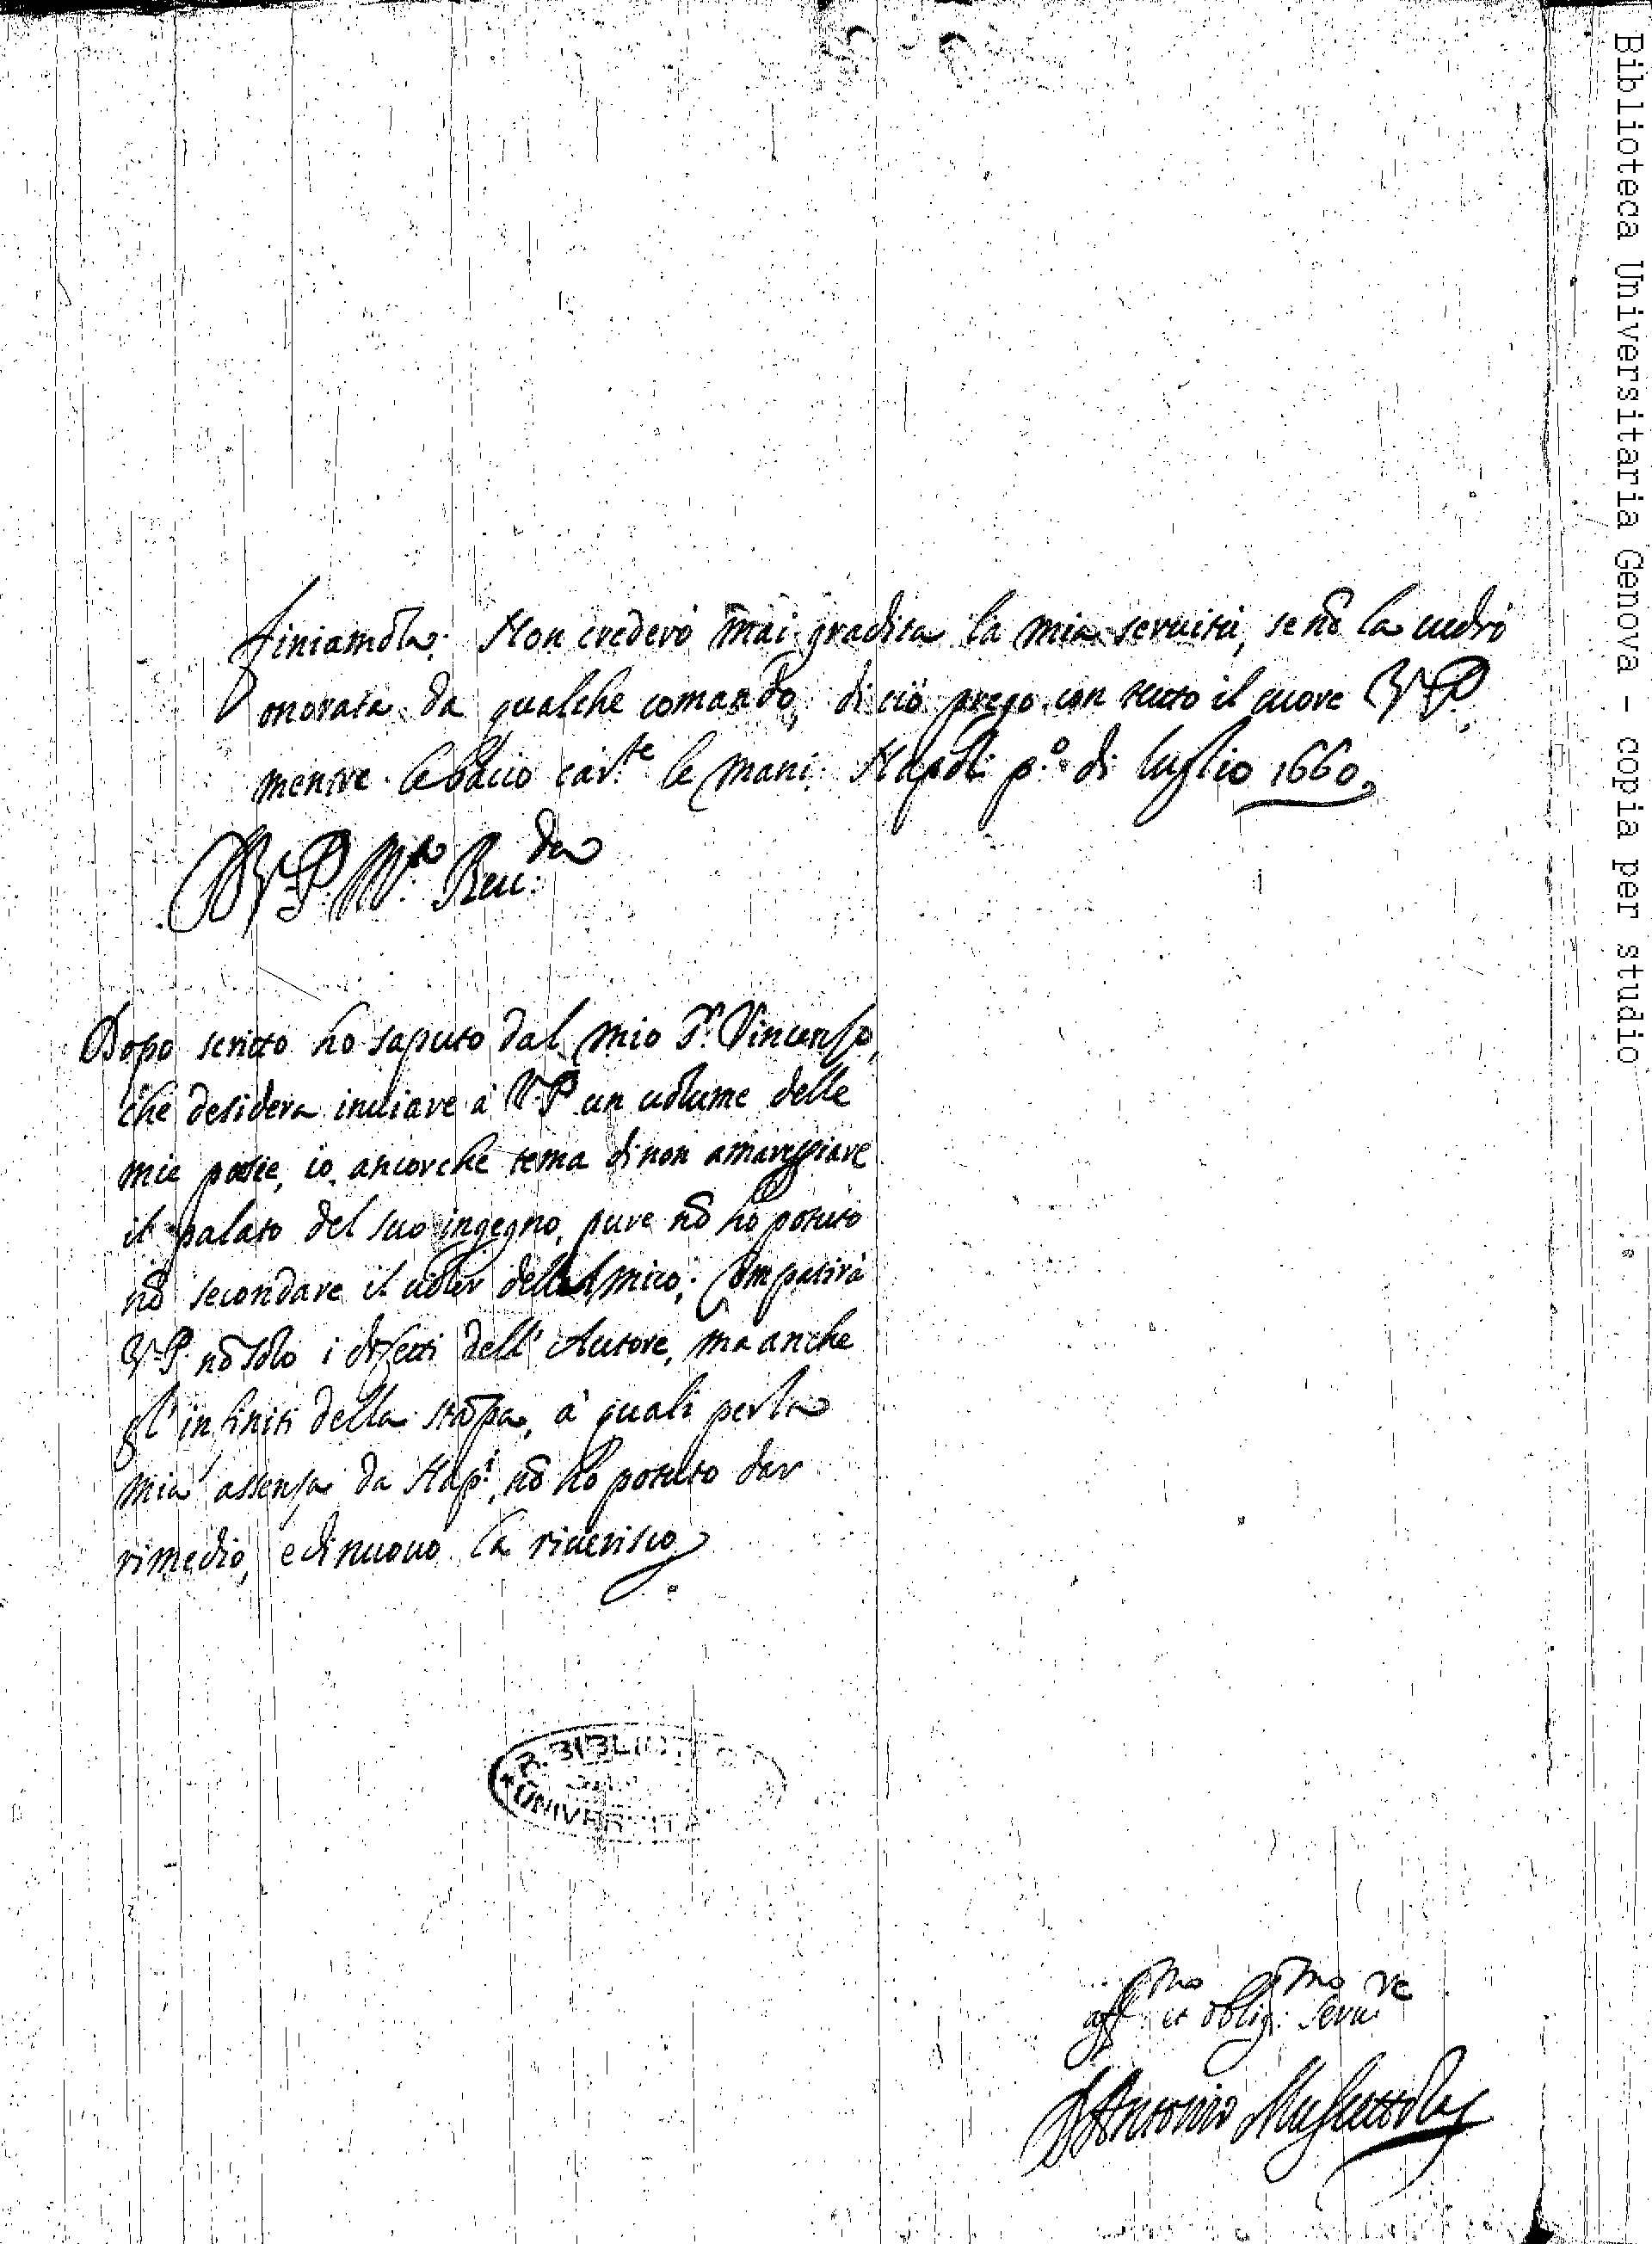 finiamola. Non crederò mai gradita la mia seruitù, se nõ la uedrò
onorata da qualche comando, di ciò prego con tutto il cuore V. P.
mentre le bacio car.te le mani. Napoli p.o di luglio 1660.
D. V. P. M.to Reu.da
Dopo scritto ho saputo dal mio P. Vincenso,
che desidera inuiare à V. P. un uolume delle
mie poesie, io, ancorche tema di non amareggiare
il palato del suo ingegno, pure nõ hò potuto
nõ secondare il uoler dell'Amico; Compatirà
V. P. nõ solo i difetti dell'Autore, ma anche
gl'infiniti della stãpa, à quali per la
mia assensa da Nap.i, nõ hò potuto dar
rimedio, e di nuouo la riuerisco.
R. BIBLIOTECA
UNIVERSITA
aff.mo et oblig.mo seru.re
D. Antonio Muscettola
Biblioteca Universitaria Genova - copia per studio